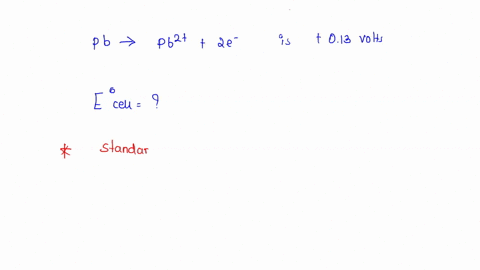 Pb → Pb²⁺ + 2e⁻ is + 0.13 volts
E° cell = ?
* Standar